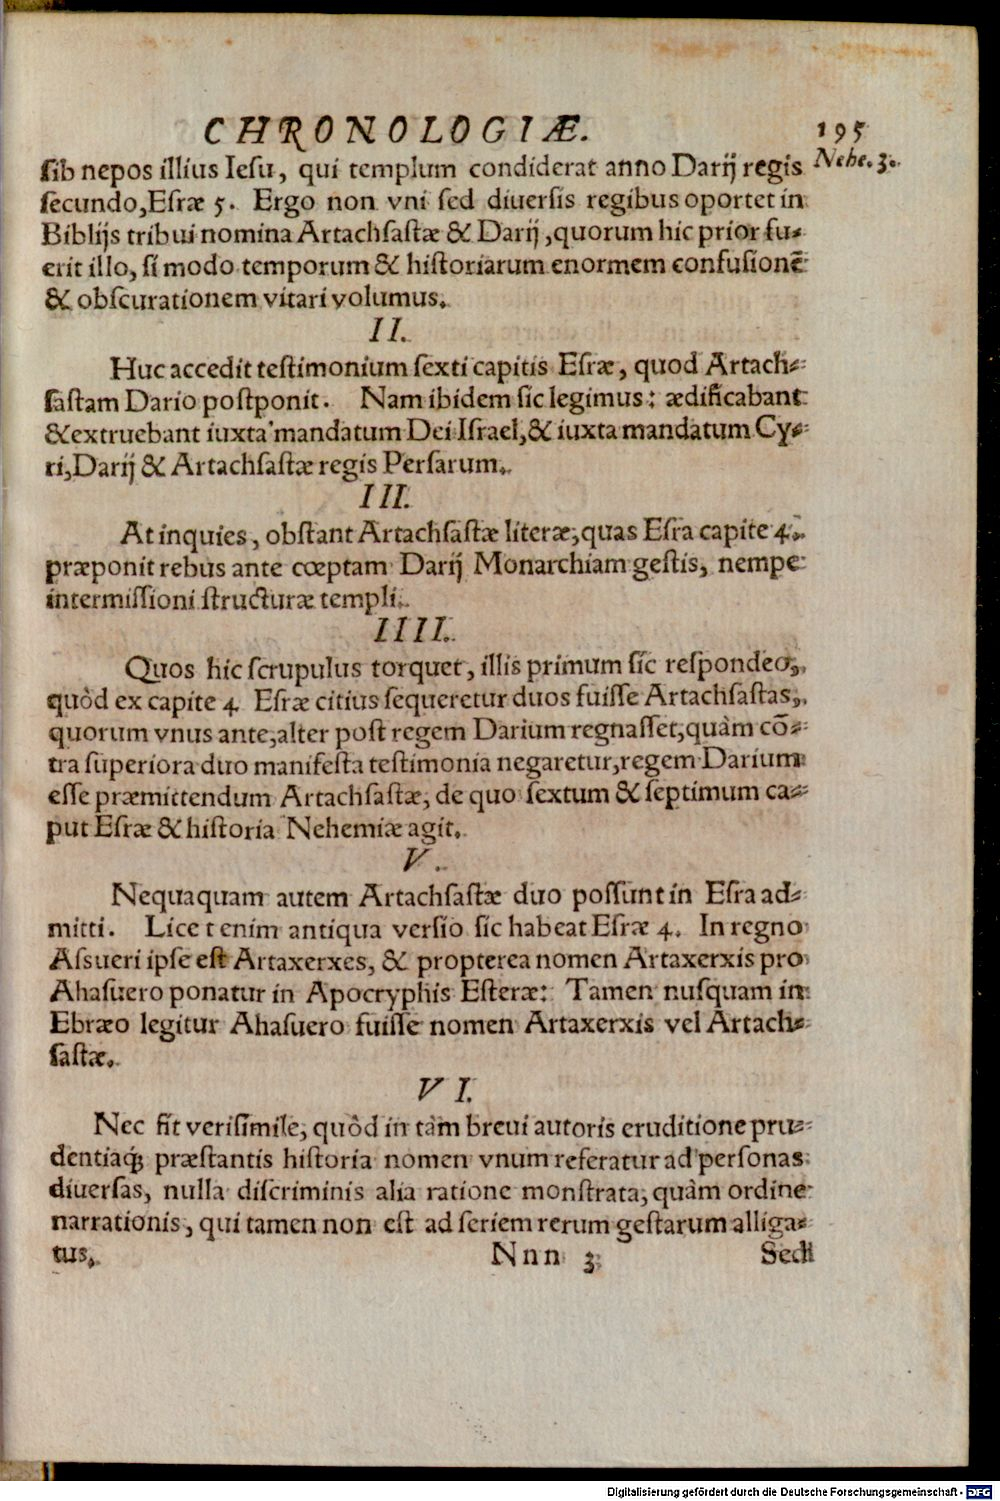 CHRONOLOGIÆ. 195
ſib nepos illius Ieſu, qui templum condiderat anno Darij regis Nehe. 3.
ſecundo, Eſræ 5. Ergo non vni ſed diuerſis regibus oportet in
Biblijs tribui nomina Artachſaſtæ & Darij, quorum hic prior fu-
erit illo, ſi modo temporum & hiſtoriarum enormem confuſionē
& obſcurationem vitari volumus.
II.
Huc accedit teſtimonium ſexti capitis Eſræ, quod Artach-
ſaſtam Dario poſtponit. Nam ibidem ſic legimus: ædificabant
& extruebant iuxta mandatum Dei Iſrael, & iuxta mandatum Cy-
ri, Darij & Artachſaſtæ regis Perſarum.
III.
At inquies, obſtant Artachſaſtæ literæ, quas Eſra capite 4.
præponit rebus ante cœptam Darij Monarchiam geſtis, nempe
intermiſſioni ſtructuræ templi.
IIII.
Quos hic ſcrupulus torquet, illis primum ſic reſpondeo,
quòd ex capite 4 Eſræ citius ſequeretur duos fuiſſe Artachſaſtas,
quorum vnus ante, alter poſt regem Darium regnaſſet, quàm cō-
tra ſuperiora duo manifeſta teſtimonia negaretur, regem Darium
eſſe præmittendum Artachſaſtæ, de quo ſextum & ſeptimum ca-
put Eſræ & hiſtoria Nehemiæ agit.
V.
Nequaquam autem Artachſaſtæ duo poſſunt in Eſra ad-
mitti. Lice t enim antiqua verſio ſic habeat Eſræ 4. In regno
Aſsueri ipſe eſt Artaxerxes, & propterea nomen Artaxerxis pro
Ahaſuero ponatur in Apocryphis Eſteræ: Tamen nuſquam in
Ebræo legitur Ahaſuero fuiſſe nomen Artaxerxis vel Artach-
ſaſtæ.
VI.
Nec fit veriſimile, quòd in tàm breui autoris eruditione pru-
dentiaq́; præſtantis hiſtoria nomen vnum referatur ad perſonas
diuerſas, nulla diſcriminis alia ratione monſtrata, quàm ordine
narrationis, qui tamen non eſt ad ſeriem rerum geſtarum alliga-
tus. Nnn 3 Sed
Digitalisierung gefördert durch die Deutsche Forschungsgemeinschaft - DFG